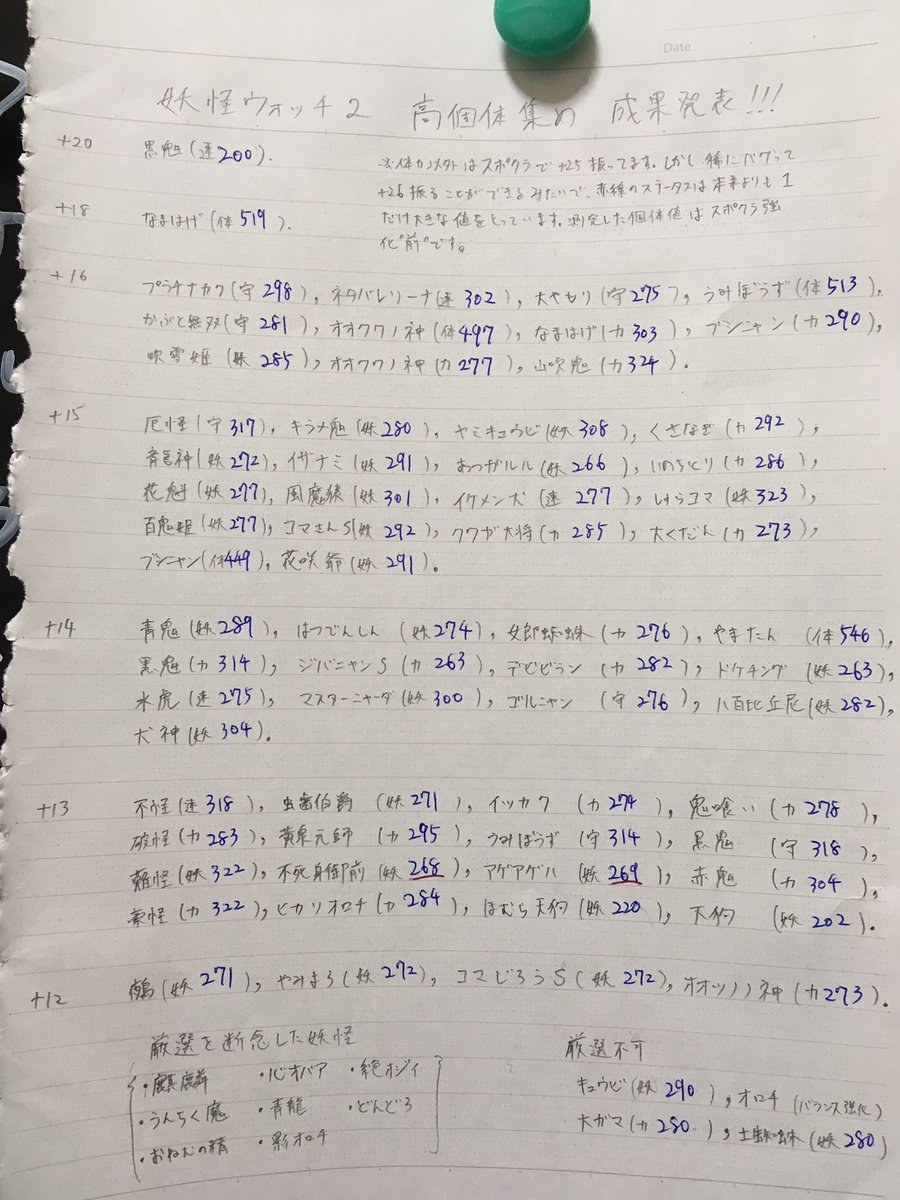 Date
妖怪ウォッチ2 高個体集め 成果発表!!!
+20 黒鬼(速200).
※体カンメタトはスポクラで+25振ってます。しかし稀にバグって
+26振ることができるみたいで、赤線のステータスは本来よりも1
だけ大きな値をとっています。測定した個体値はスポクラ強
化"前"です。
+18 なまはげ(体519).
+16 プラチナカク(守298), ネタバレリーナ(速302), 大やもり(守275), うみぼうず(体513),
かぶと無双(守281), オオクワノ神(体497), なまはげ(力303), ブシニャン(力290),
吹雪姫(妖285), オオクワノ神(力277), 山吹鬼(力324).
+15 厄怪(守317), キラメ鬼(妖280), ヤミキュウビ(妖308), くさなぎ(力292),
青龍神(妖272), イザナミ(妖291), あつガルル(妖266), いのちとり(力286),
花魁(妖277), 風魔猿(妖301), イケメン犬(速277), しゅらコマ(妖323),
百鬼姫(妖277), コマさんS(妖292), クワガ大将(力285), 大くだん(力273),
ブシニャン(体449), 花咲爺(妖291).
+14 青鬼(妖289), はつでんしん(妖274), 女郎蜘蛛(力276), やまたん(体546),
黒鬼(力314), ジバニャンS(力263), デビビラン(力282), ドケチング(妖263),
水虎(速275), マスターニャーダ(妖300), ゴルニャン(守276), 八百比丘尼(妖282),
犬神(妖304).
+13 不怪(速318), 虫歯伯爵(妖271), イッカク(力274), 鬼喰い(力278),
破怪(力283), 黄泉元帥(力295), うみぼうず(守314), 黒鬼(守318),
難怪(妖322), 不死身御前(妖268), アゲアゲハ(妖269), 赤鬼(力304),
豪怪(力322), ヒカリオロチ(力284), ほむら天狗(妖220), 天狗(妖202).
+12 鵺(妖271), やみまろ(妖272), コマじろうS(妖272), オオツノノ神(力273).
厳選を断念した妖怪
・麒麟 ・心オバア ・絶オジイ
・うんちく魔 ・青龍 ・どんどろ
・おねむの精 ・影オロチ
厳選不可
キュウビ(妖290), オロチ(バランス強化)
大ガマ(力280), 土蜘蛛(妖280)